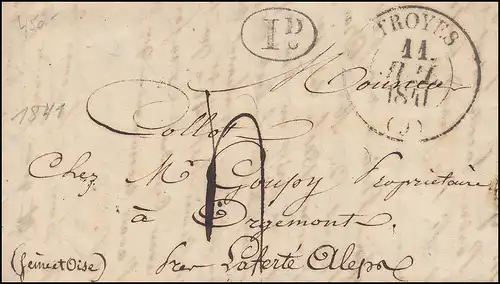 450.-
1 D
TROYES
11
1841
(9)
1841
Monsieur
Collot
Chez Mr. Goupy Propriétaire
à Orgemont.
(Seine et Oise) par Laferté Aleps